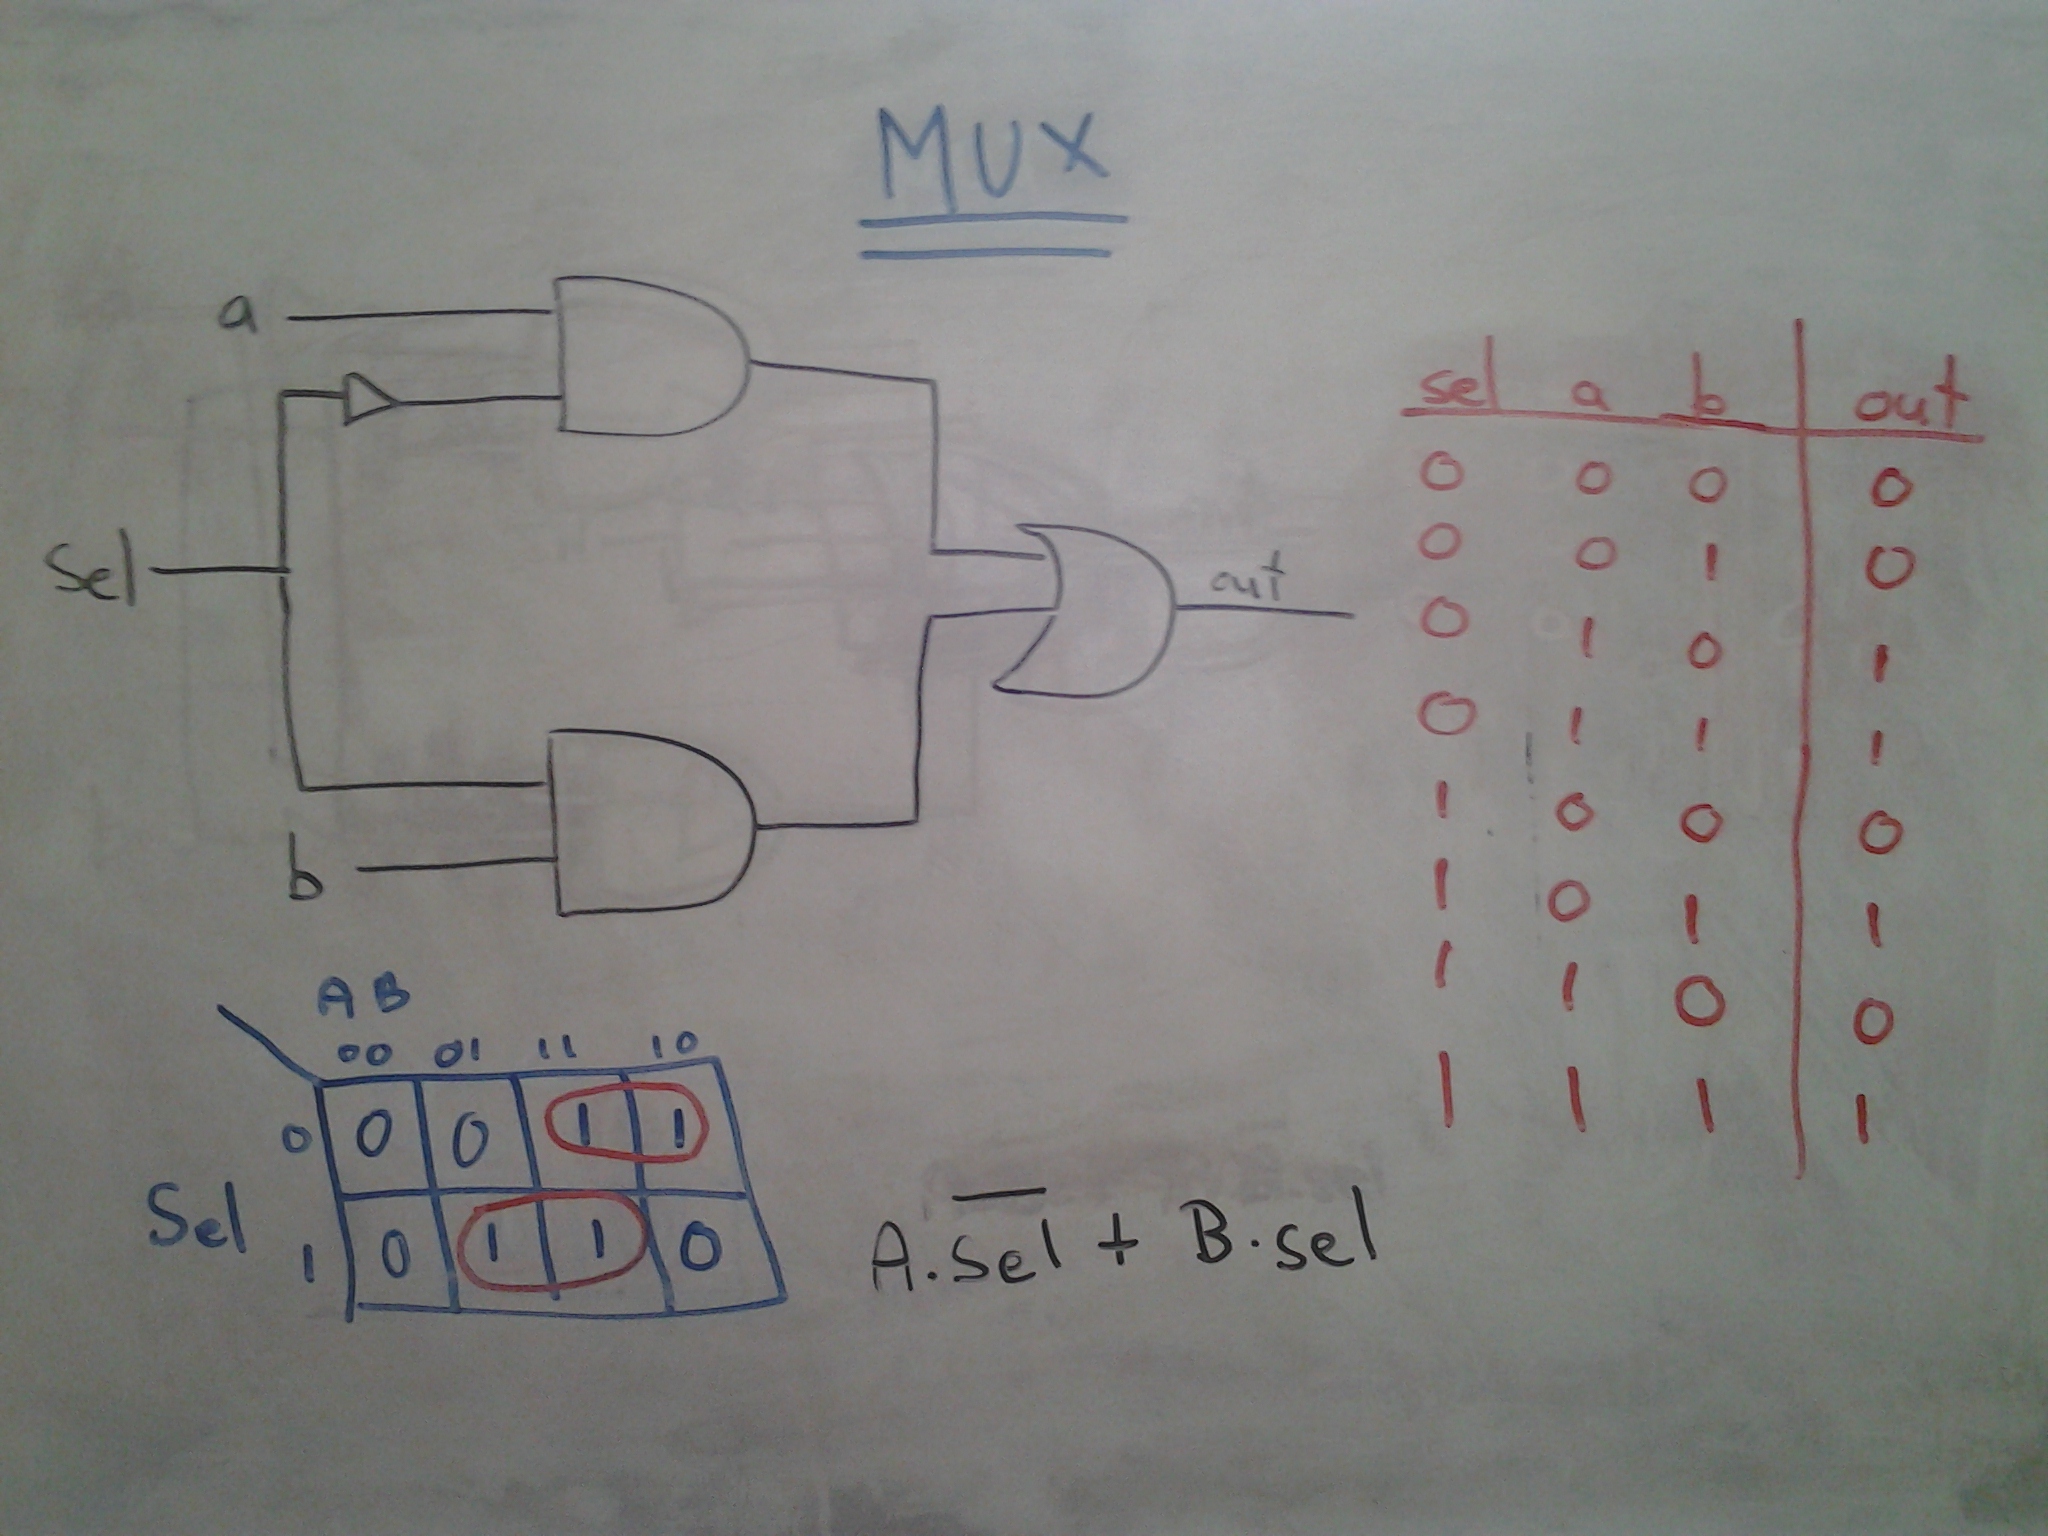 MUX
a
Sel
b
out
sel a b out
0 0 0 0
0 0 1 0
0 1 0 1
0 1 1 1
1 0 0 0
1 0 1 1
1 1 0 0
1 1 1 1
AB
00 01 11 10
0 0 0 1 1
Sel
1 0 1 1 0
A.s̅e̅l̅ + B.sel